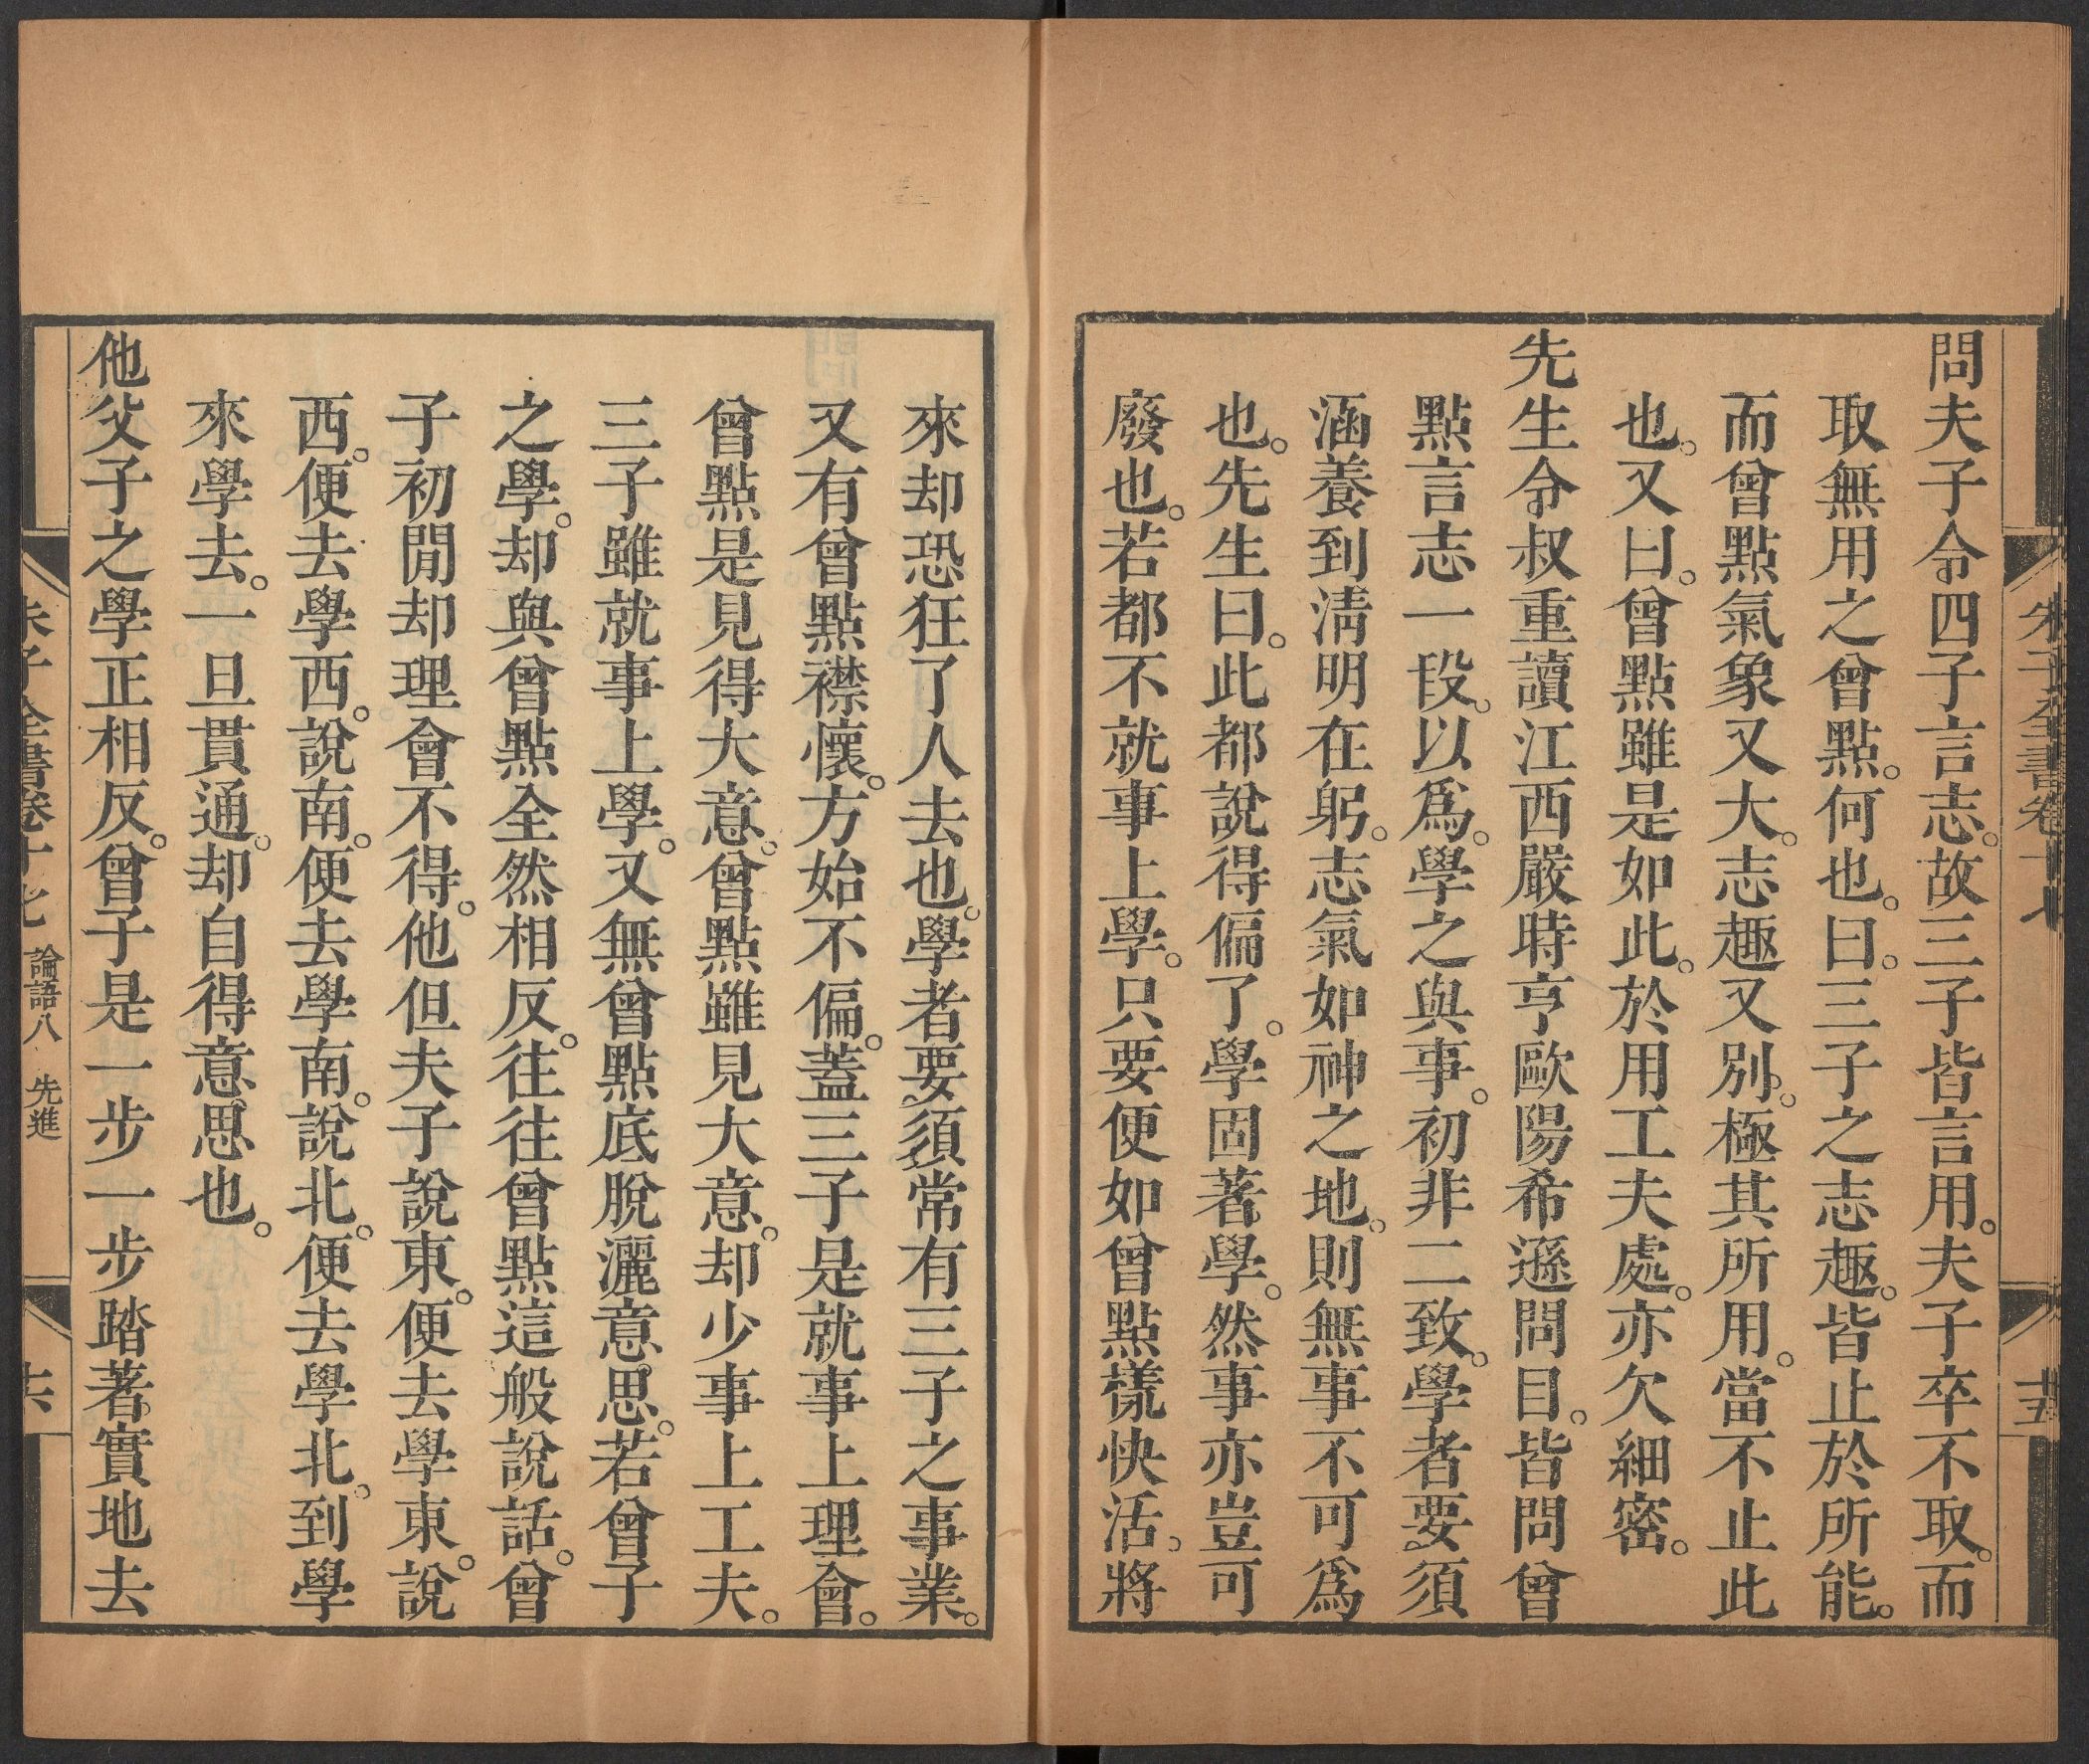 朱子全書卷十七
十五
問夫子令四子言志。故三子皆言用。夫子卒不取。而
取無用之曾點。何也。曰。三子之志趣。皆止於所能。
而曾點氣象又大。志趣又別。極其所用。當不止此
也。又曰。曾點雖是如此。於用工夫處。亦欠細密。
先生令叔重讀江西嚴時亨歐陽希遜問目。皆問曾
點言志一段。以爲。學之與事。初非二致。學者要須
涵養到淸明在躬。志氣如神之地。則無事不可爲
也。先生曰。此都說得偏了。學固著學。然事亦豈可
廢也。若都不就事上學。只要便如曾點樣快活。將
來却恐狂了人去也。學者要須常有三子之事業。
又有曾點襟懷。方始不偏。蓋三子是就事上理會。
曾點是見得大意。曾點雖見大意。却少事上工夫。
三子雖就事上學。又無曾點底脫灑意思。若曾子
之學。却與曾點全然相反。往往曾點這般說話。曾
子初閒却理會不得。他但夫子說東。便去學東。說
西。便去學西。說南。便去學南。說北。便去學北。到學
來學去。一旦貫通。却自得意思也。
他父子之學正相反。曾子是一步一步踏著實地去
朱子全書卷十七 論語八 先進
十六